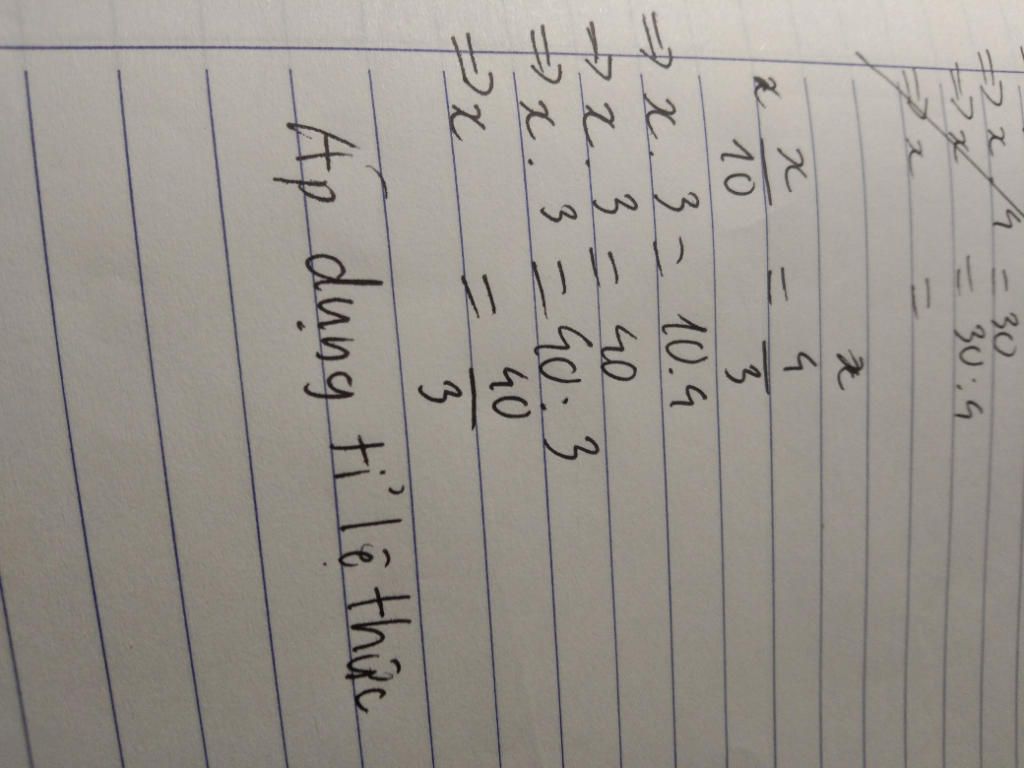 => x 4 = 30
=> x = 30 : 4
=> x =
x
x/10 = 4/3
=> x . 3 = 10 . 4
=> x . 3 = 40
=> x . 3 = 40 : 3
=> x = 40/3
Áp dụng tỉ lệ thức